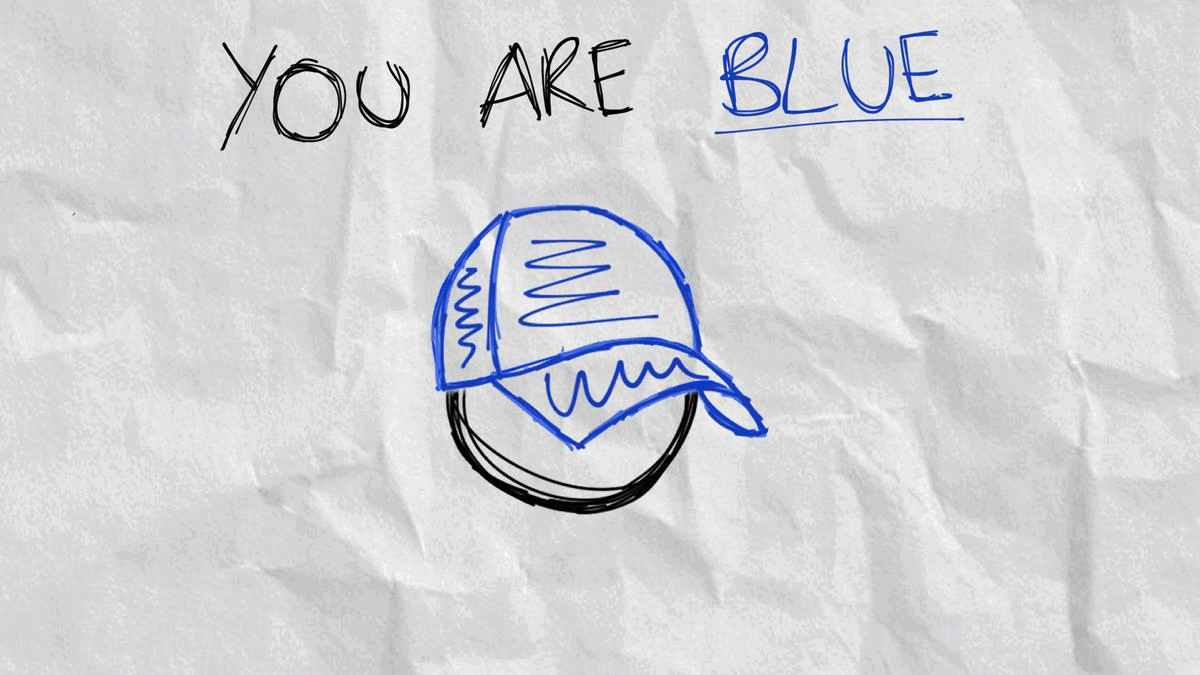 YOU ARE BLUE